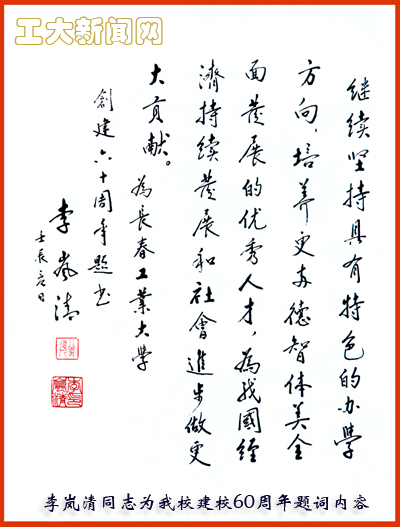 工大新闻网
继续坚持具有特色的办学
方向，培养更多德智体美全
面發展的优秀人才，為我國經
濟持续發展和社會進步做更
大贡献。
為長春工業大學
創建六十周年题书
李岚清
壬辰夏日
李岚清同志为我校建校60周年题词内容